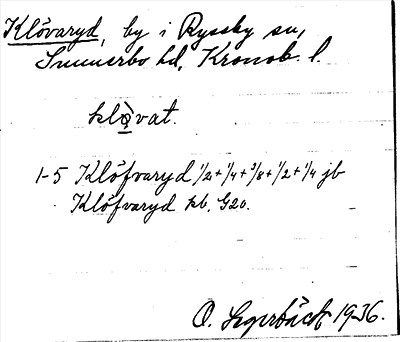 Klövaryd, by i Ryssby sn,
Sunnerbo hd, Kronob. l.
klò̱vat.
1-5 Klöfvaryd 1/2+1/4+3/8+1/2+1/4 jb
Klöfvaryd kb. G20.
O. Segerbäck 1936.